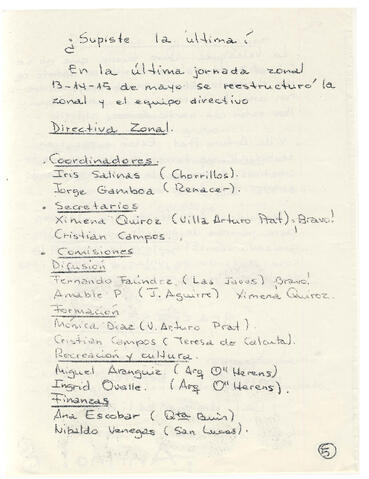 ¿Supiste la última?
En la última jornada zonal
13-14-15 de mayo se reestructuró la
zonal y el equipo directivo
Directiva Zonal.
. Coordinadores.
Iris Salinas (Chorrillos).
Jorge Gamboa (Renacer).
. Secretarios
Ximena Quiroz (Villa Arturo Prat). Bravo!
Cristián Campos.
. Comisiones
Difusión
Fernando Faúndez (Las Jaevas) Bravo!
Amable P. (J. Aguirre) Ximena Quiroz.
Formación
Monica Diaz (V. Arturo Prat).
Cristián Campos (Teresa de Calcuta).
Recreación y cultura.
Miguel Aranguiz (Arq O" Herens)
Ingrid Ovalle. (Arq O" Herens).
Finanzas
Ana Escobar (Qta Buin)
Nibaldo Venegas (San Lucas).
5